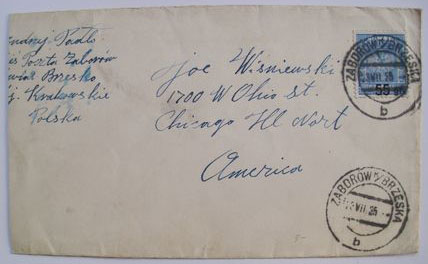 Padło
Poczta Zaborów
Brzesko
Krakowskie
Polska
Joe Wiśniewski
1700 W Ohio St.
Chicago Ill Nort
America
ZABORÓW/BRZESKA
VII 35
b
55
ZABORÓW/BRZESKA
VII 35
b